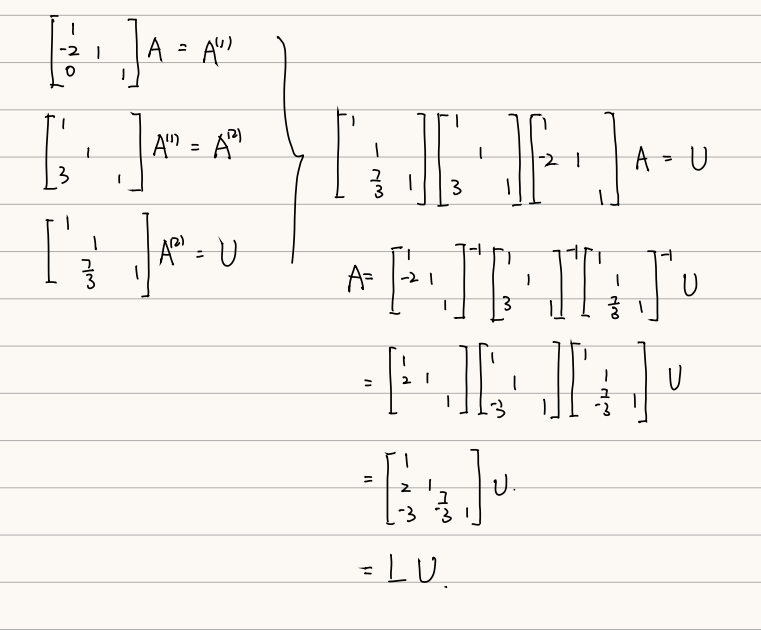 [1; -2 1; 0 1] A = A⁽¹⁾
[1; 1; 3 1] A⁽¹⁾ = A⁽²⁾
[1; 1; 7/3 1] A⁽²⁾ = U
[1; 1; 7/3 1] [1; 1; 3 1] [1; -2 1; 1] A = U
A = [1; -2 1; 1]⁻¹ [1; 1; 3 1]⁻¹ [1; 1; 7/3 1]⁻¹ U
= [1; 2 1; 1] [1; 1; -3 1] [1; 1; -7/3 1] U
= [1; 2 1; -3 -7/3 1] U.
= L U.